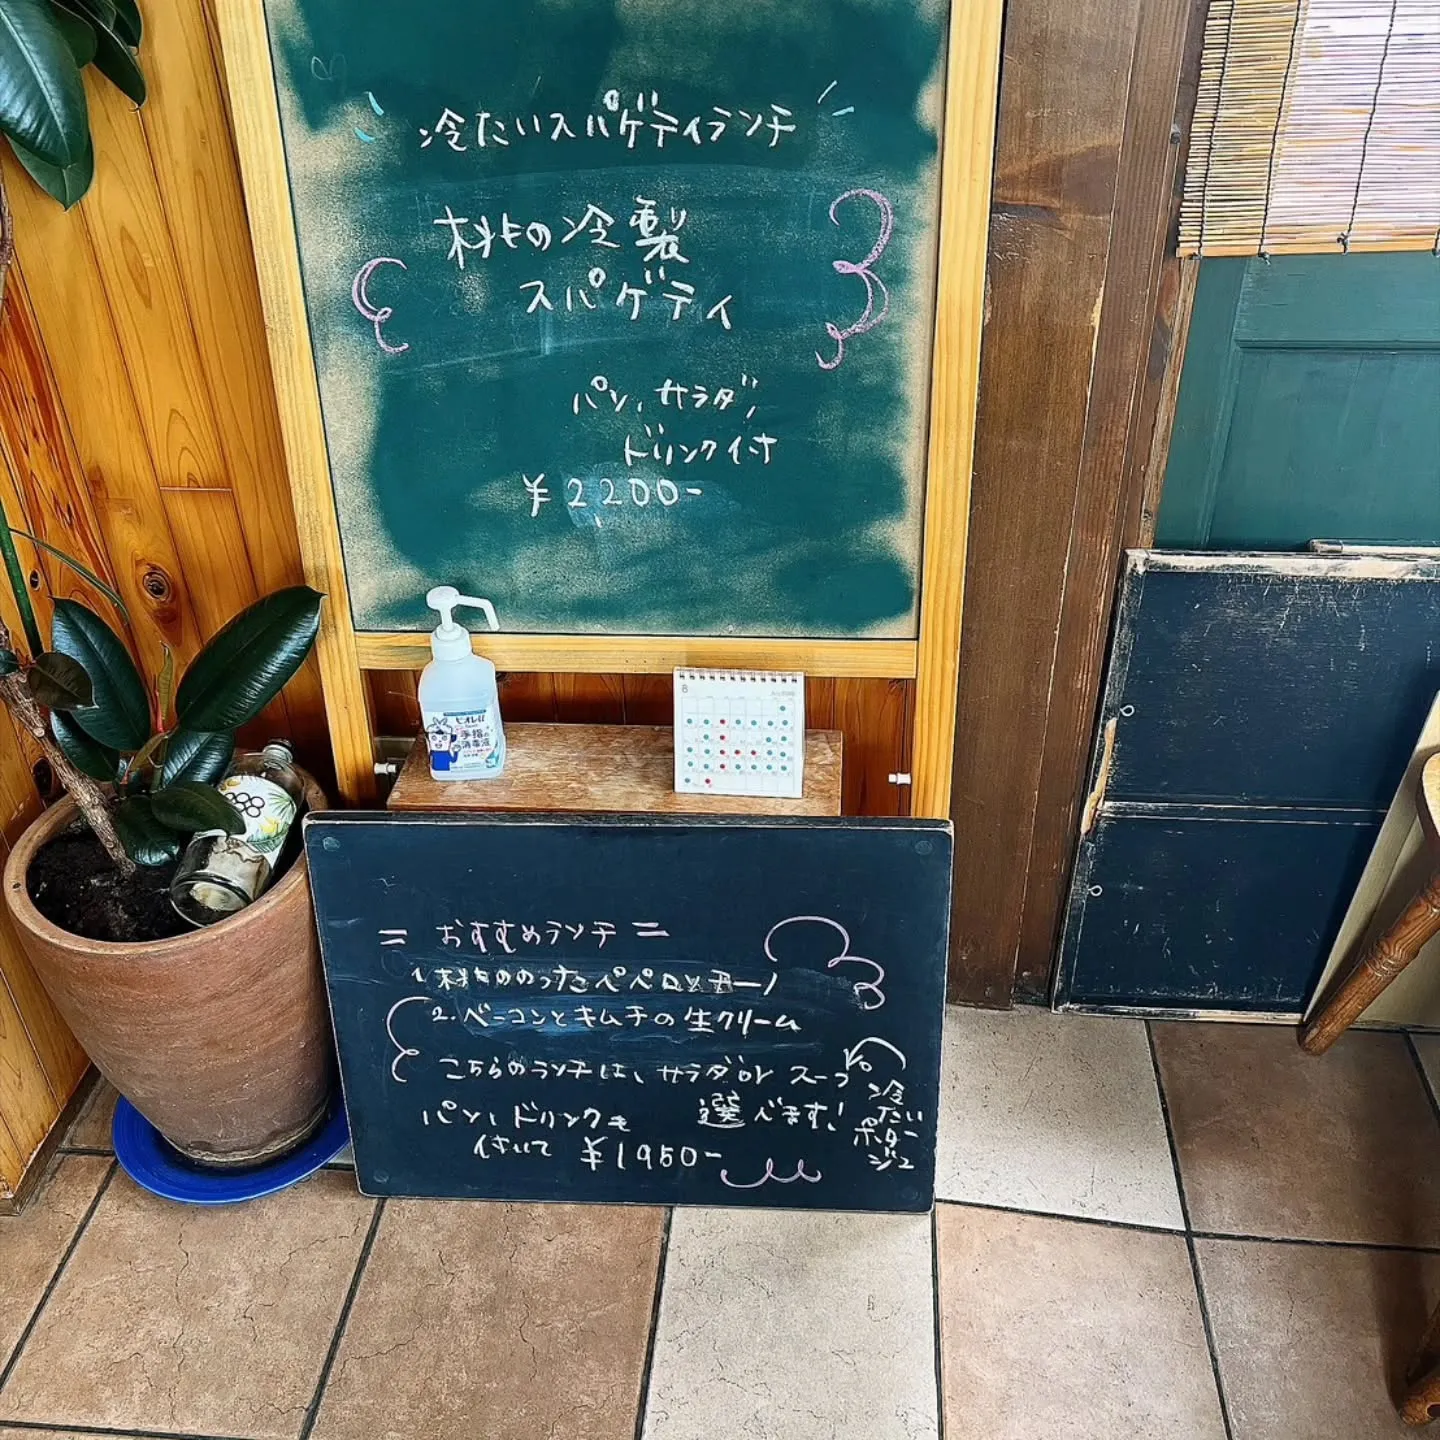 冷たいスパゲティランチ
桃の冷製
スパゲティ
パン、サラダ、
ドリンク付
¥2,200-
ビオレu
手指の
消毒液
8
= おすすめランチ =
1. 桃ののったペペロンチーノ
2. ベーコンとキムチの生クリーム
こちらのランチは、サラダ or スープ
選べます!
パン、ドリンクも
付いて ¥1950-
冷
たい
ポター
ジュ